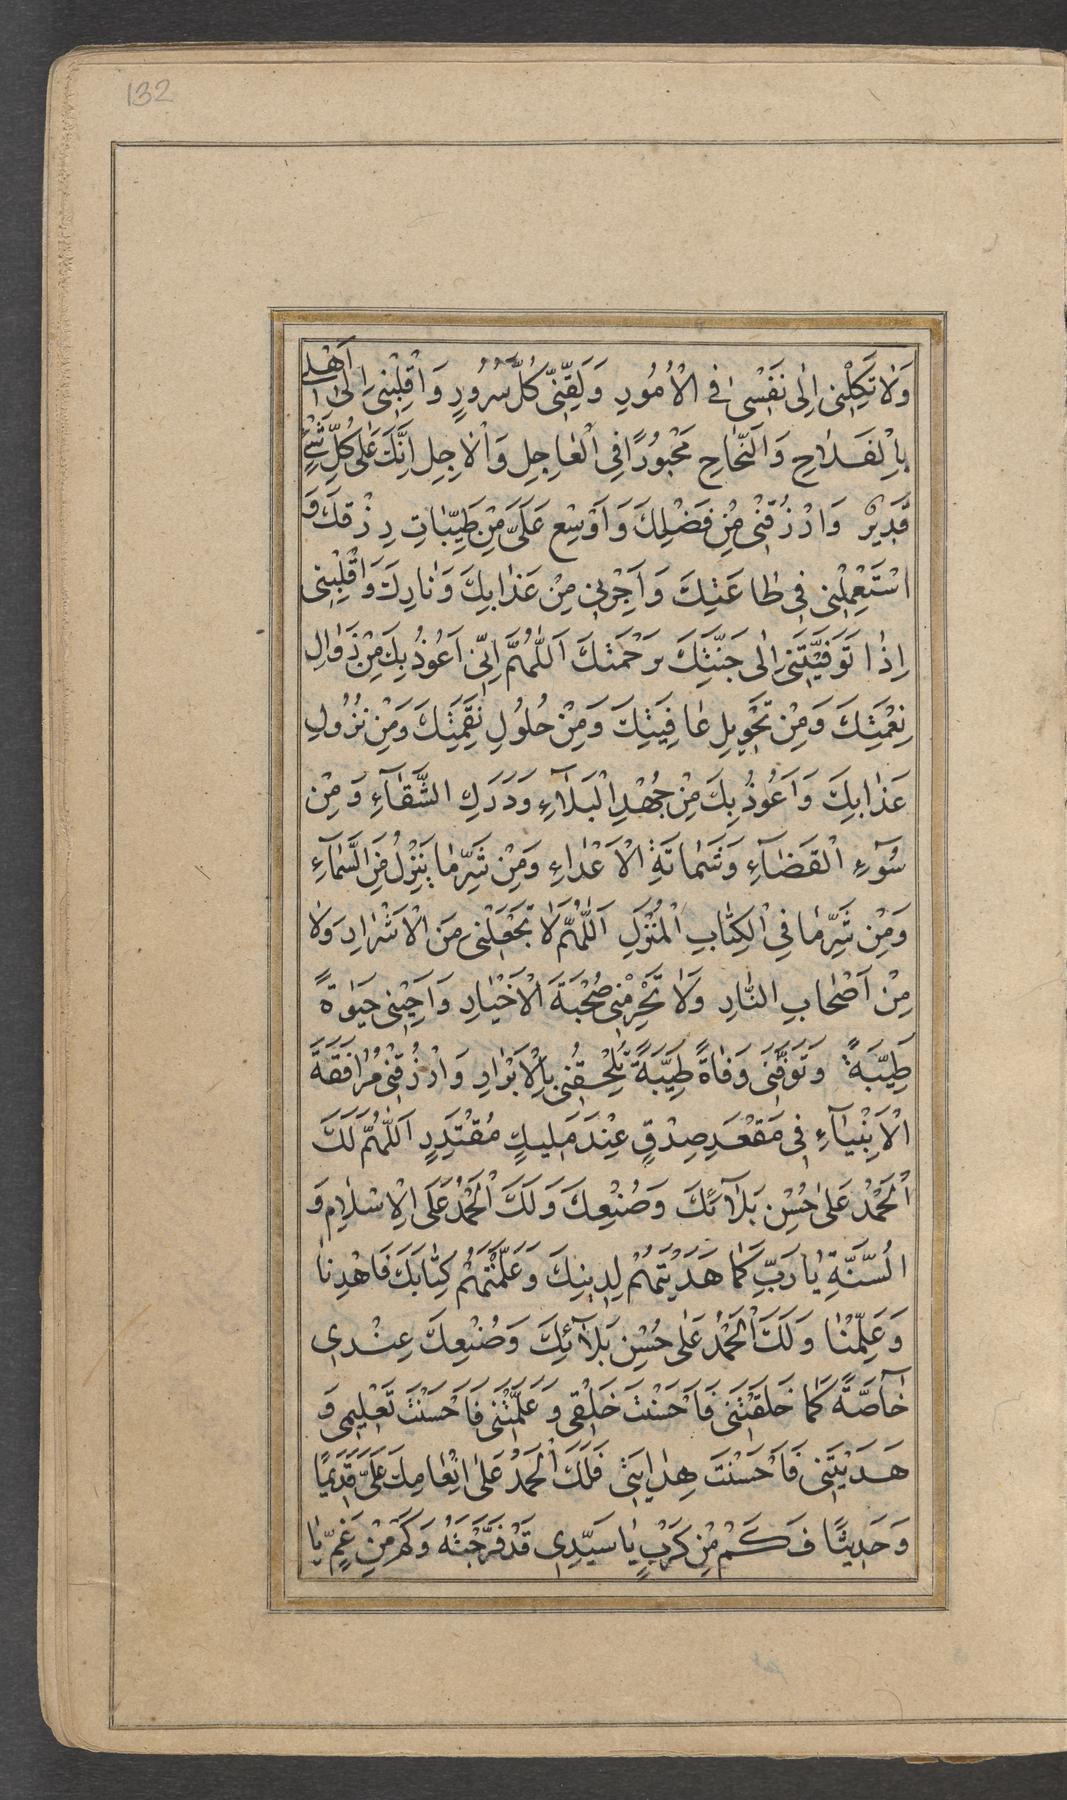 132
وَلَا تَكِلْنِى اِلٰى نَفْسِىْ فِى الْاُمُورِ وَلَقِّنِّى كُلَّ سُرُورٍ وَاقْلِبْنِى اِلٰى اَهْلِى
بِالْفَلَاحِ وَالنَّجَاحِ مَحْبُورًا فِى الْعَاجِلِ وَالْاٰجِلِ اِنَّكَ عَلٰى كُلِّ شَىْءٍ
قَدِيرٌ وَارْزُقْنِى مِنْ فَضْلِكَ وَاَوْسِعْ عَلَىَّ مِنْ طَيِّبَاتِ رِزْقِكَ وَ
اسْتَعْمِلْنِى فِى طَاعَتِكَ وَاَجِرْنِى مِنْ عَذَابِكَ وَنَارِكَ وَاقْلِبْنِى
اِذَا تَوَفَّيْتَنِى اِلٰى جَنَّتِكَ بِرَحْمَتِكَ اَللّٰهُمَّ اِنِّى اَعُوذُ بِكَ مِنْ زَوَالِ
نِعْمَتِكَ وَمِنْ تَحْوِيلِ عَافِيَتِكَ وَمِنْ حُلُولِ نَقِمَتِكَ وَمِنْ نُزُولِ
عَذَابِكَ وَاَعُوذُ بِكَ مِنْ جُهْدِ الْبَلَآءِ وَدَرَكِ الشَّقَآءِ وَمِنْ
سُوٓءِ الْقَضَآءِ وَشَمَاتَةِ الْاَعْدَاءِ وَمِنْ شَرِّ مَا يَنْزِلُ مِنَ السَّمَآءِ
وَمِنْ شَرِّ مَا فِى الْكِتَابِ الْمُنْزَلِ اَللّٰهُمَّ لَا تَجْعَلْنِى مِنَ الْاَشْرَارِ وَلَا
مِنْ اَصْحَابِ النَّارِ وَلَا تَحْرِمْنِى صُحْبَةَ الْاَخْيَارِ وَاَحْيِنِى حَيٰوةً
طَيِّبَةً وَتَوَفَّنِى وَفَاةً طَيِّبَةً تُلْحِقُنِى بِالْاَبْرَارِ وَارْزُقْنِى مُرَافَقَةَ
الْاَنْبِيَآءِ فِى مَقْعَدِ صِدْقٍ عِنْدَ مَلِيكٍ مُقْتَدِرٍ اَللّٰهُمَّ لَكَ
الْحَمْدُ عَلٰى حُسْنِ بَلَآئِكَ وَصُنْعِكَ وَلَكَ الْحَمْدُ عَلَى الْاِسْلَامِ وَ
السُّنَّةِ يَا رَبِّ كَمَا هَدَيْتَهُمْ لِدِينِكَ وَعَلَّمْتَهُمْ كِتَابَكَ فَاهْدِنَا
وَعَلِّمْنَا وَلَكَ الْحَمْدُ عَلٰى حُسْنِ بَلَآئِكَ وَصُنْعِكَ عِنْدِى
خَآصَّةً كَمَا خَلَقْتَنِى فَاَحْسَنْتَ خَلْقِى وَعَلَّمْتَنِى فَاَحْسَنْتَ تَعْلِيمِى وَ
هَدَيْتَنِى فَاَحْسَنْتَ هِدَايَتِى فَلَكَ الْحَمْدُ عَلٰى اِنْعَامِكَ عَلَىَّ قَدِيمًا
وَحَدِيثًا فَكَمْ مِنْ كَرْبٍ يَا سَيِّدِى قَدْ فَرَّجْتَهُ وَكَمْ مِنْ غَمٍّ يَا